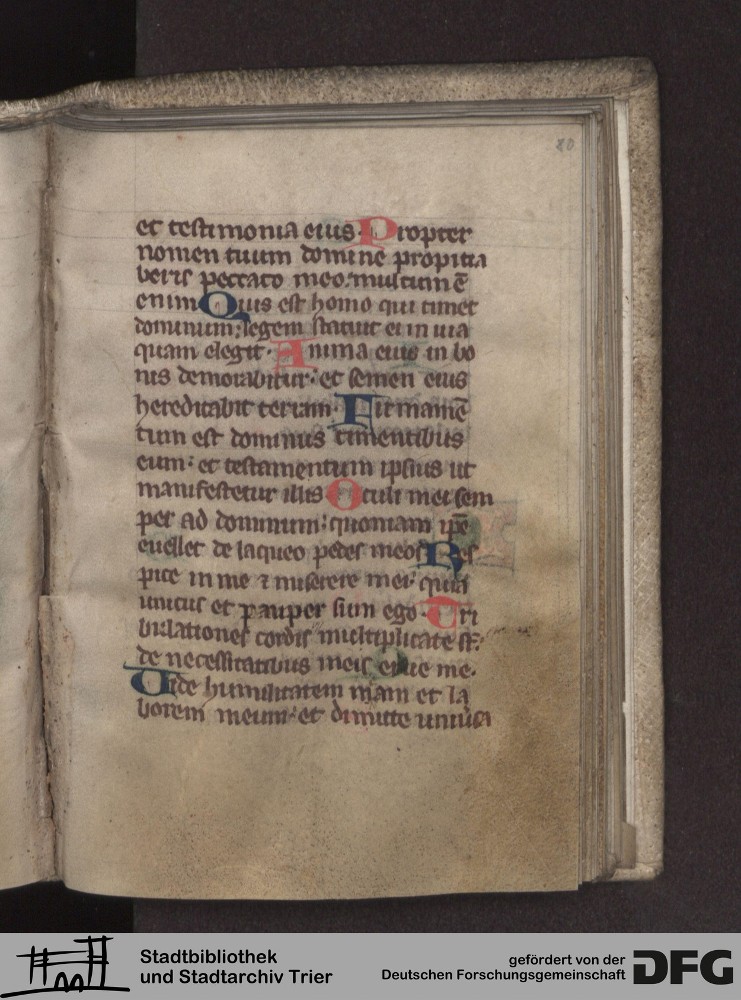 80
et testimonia eius· Propter
nomen tuum domine propitia
beris peccato meo: multum ē
enim Quis est homo qui timet
dominum: legem statuit ei in uia
quam elegit· Anima eius in bo
nis demorabitur: et semen eius
hereditabit terram· Firmamē
tum est dominus timentibus
eum: et testamentum ipsius ut
manifestetur illis Oculi mei sem
per ad dominum: quoniam ip̄e
euellet de laqueo pedes meos Res
pice in me ⁊ miserere mei· quia
unicus et pauper sum ego· Tri
bulationes cordis multiplicate st̄:
de necessitatibus meis erue me·
Uide humilitatem mam et la
borem meum: et dimitte uniuersa
Stadtbibliothek
und Stadtarchiv Trier
gefördert von der
Deutschen Forschungsgemeinschaft
DFG